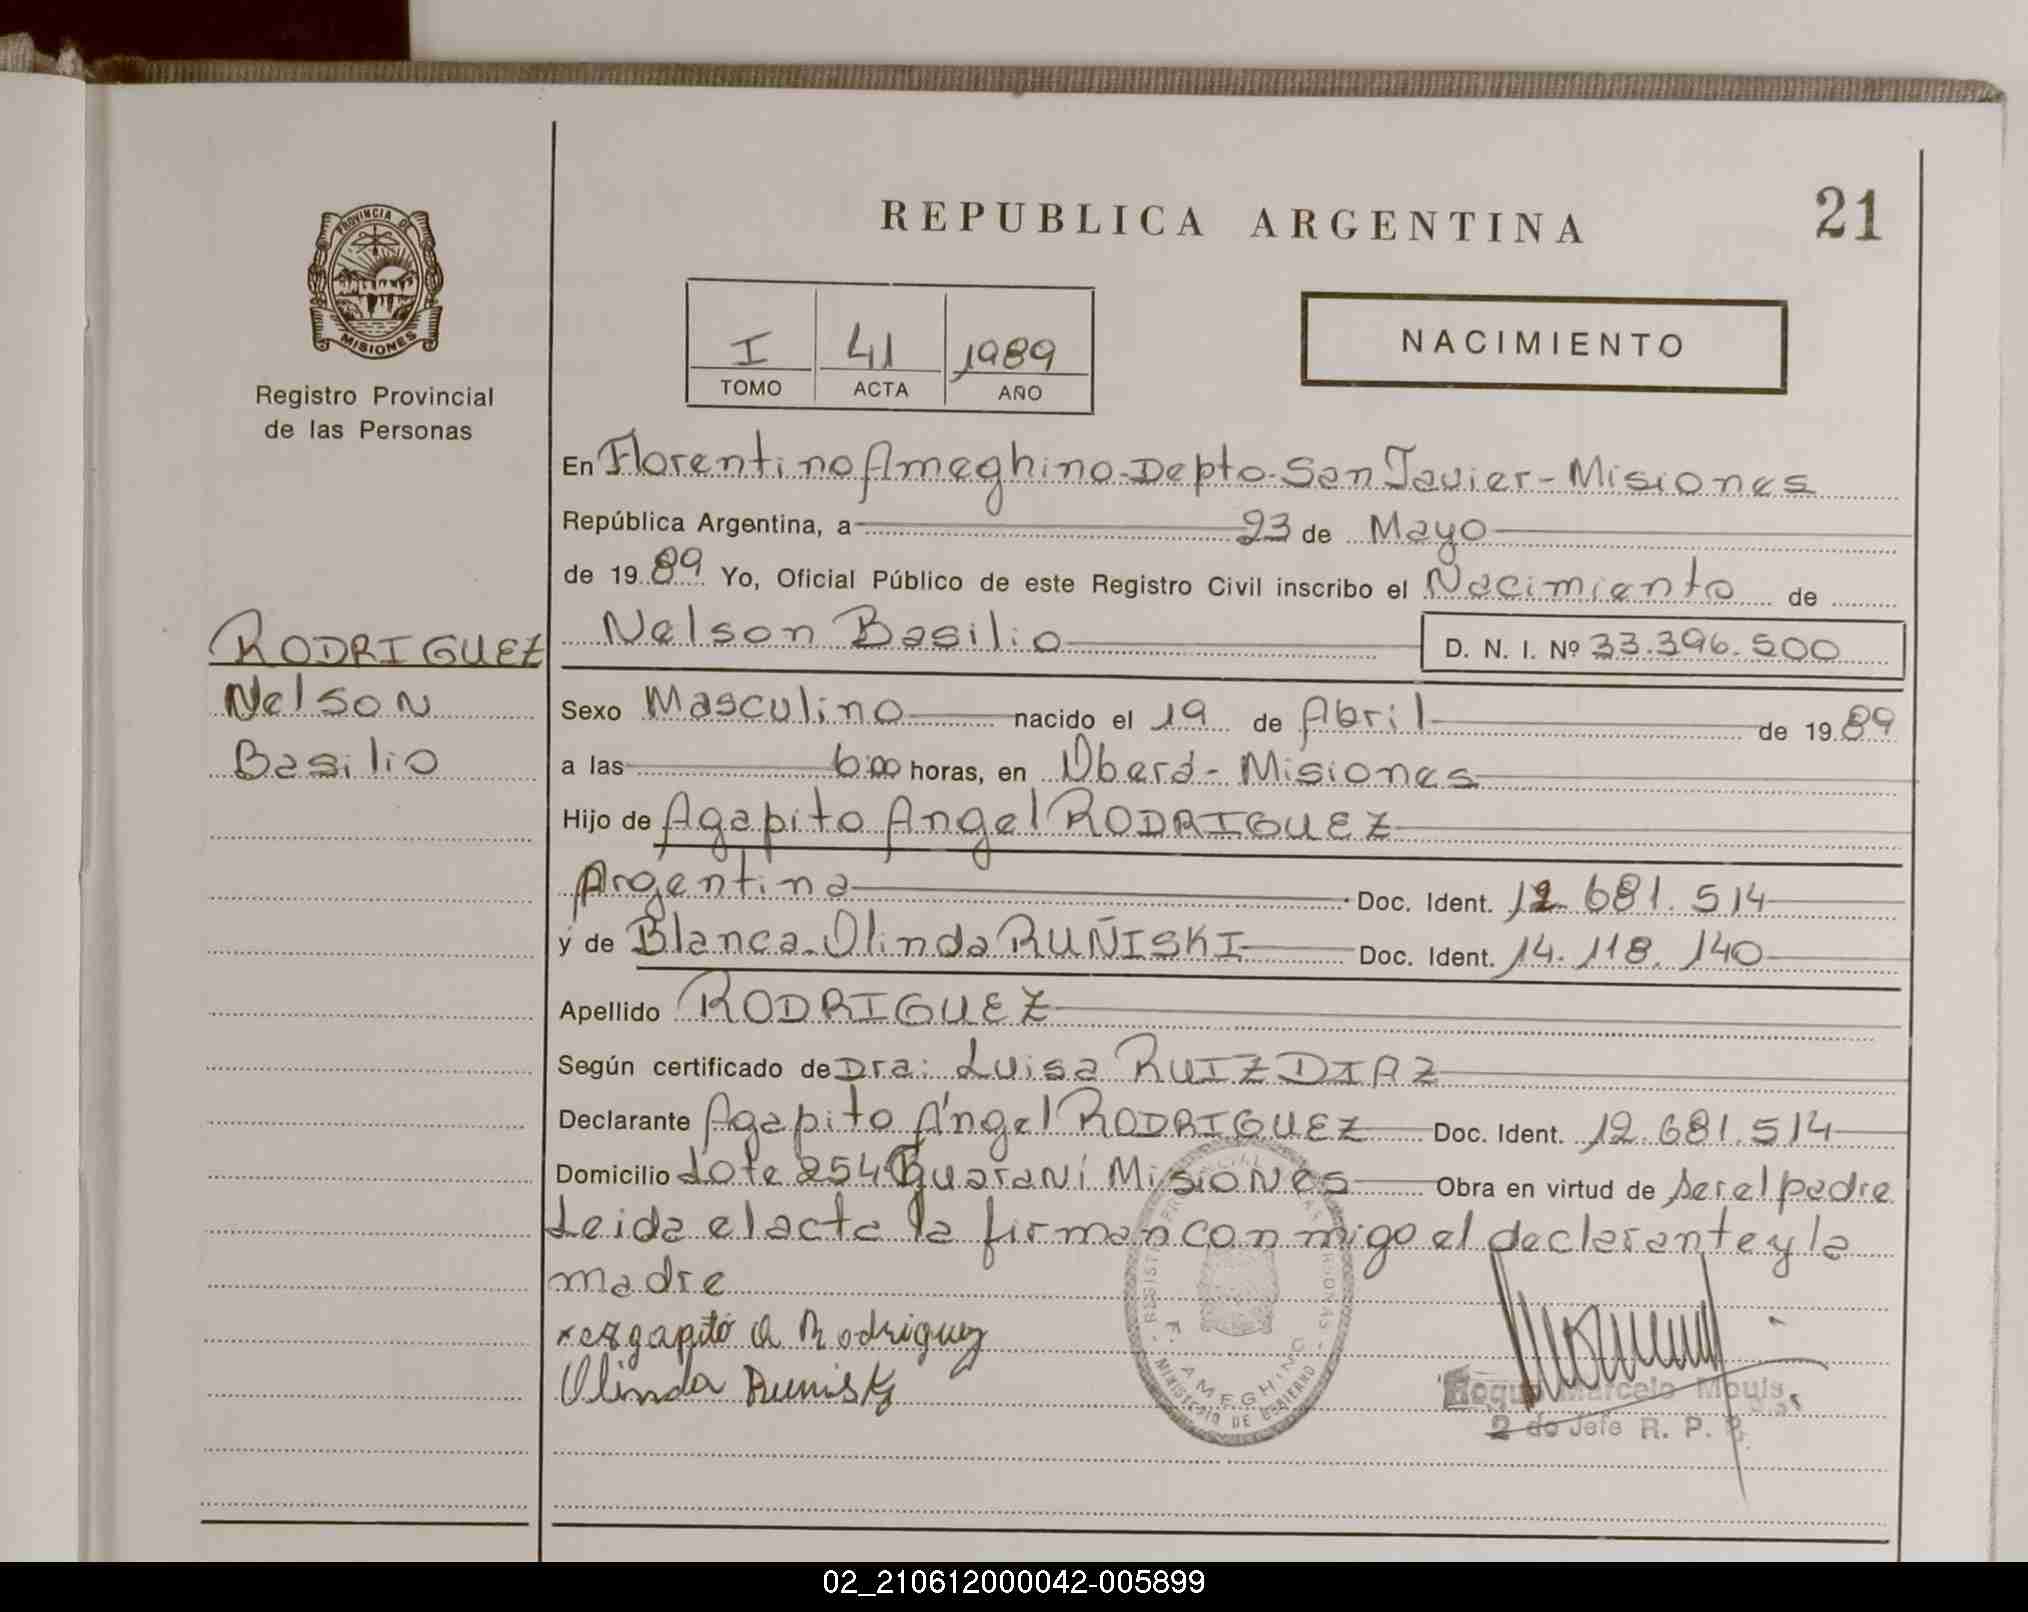 REPUBLICA ARGENTINA
21
PROVINCIA DE
MISIONES
Registro Provincial
de las Personas
I
41
1989
TOMO
ACTA
AÑO
NACIMIENTO
En Florentino Ameghino-Depto-San Javier-Misiones
República Argentina, a 23 de Mayo
de 1989 Yo, Oficial Público de este Registro Civil inscribo el Nacimiento de
Nelson Basilio D. N. I. Nº 33.396.500
RODRIGUEZ
Nelson
Basilio
Sexo Masculino nacido el 19 de Abril de 1989
a las 6:00 horas, en Oberá-Misiones
Hijo de Agapito Angel RODRIGUEZ
Argentina Doc. Ident. 12.681.514
y de Blanca Olinda RUÑISKI Doc. Ident. 14.118.140
Apellido RODRIGUEZ
Según certificado de Dra: Luisa RUIZ DIAZ
Declarante Agapito Ángel RODRIGUEZ Doc. Ident. 12.681.514
Domicilio Lote 254 Guaraní Misiones Obra en virtud de ser el padre
Leida el acta la firman con migo el declarante y la
madre
Agapito A Rodriguez
Olinda Runisky
F. AMEGHINO
MINISTERIO DE GOBIERNO
Roque Marcelo Mouis
2 do Jefe R. P. P.
02_210612000042-005899